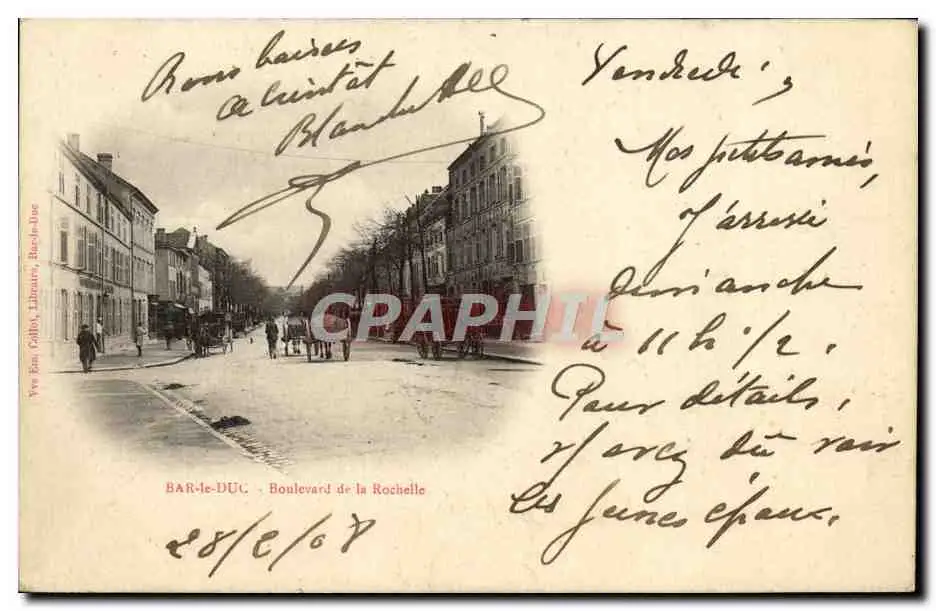 Bons baisers
A bientôt
Blanche
Vendredi,
Mes petits amis,
J'arrive
dimanche
à 11 h 1/2.
Pour détails,
voir
les Jeunes époux.
Vve Em. Collot, Libraire, Bar-le-Duc
CPAPHIL
BAR-le-DUC - Boulevard de la Rochelle
28/2/08